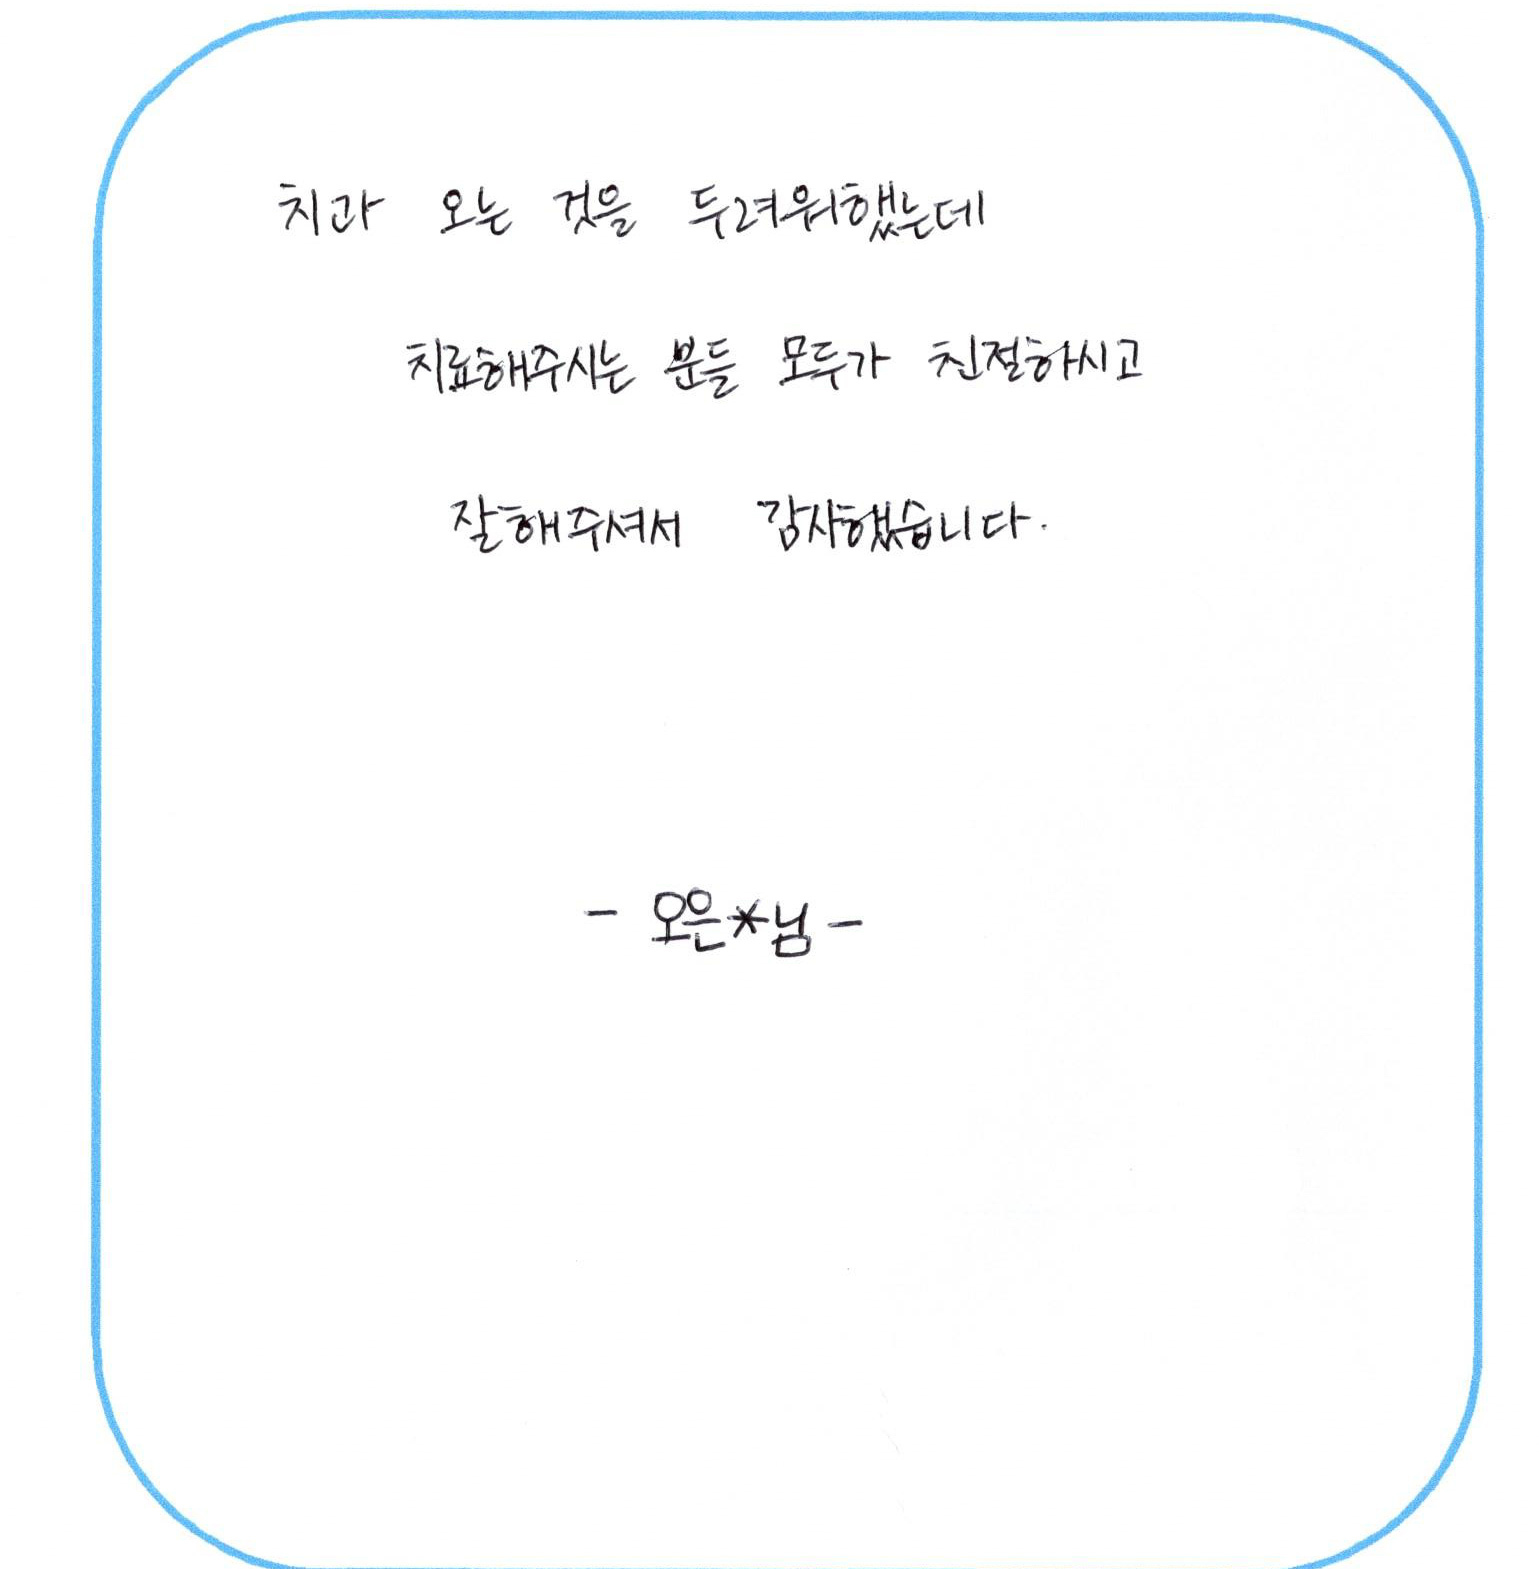 치과 오는 것을 두려워했는데
치료해주시는 분들 모두가 친절하시고
잘해주셔서 감사했습니다.
- 오은*님 -